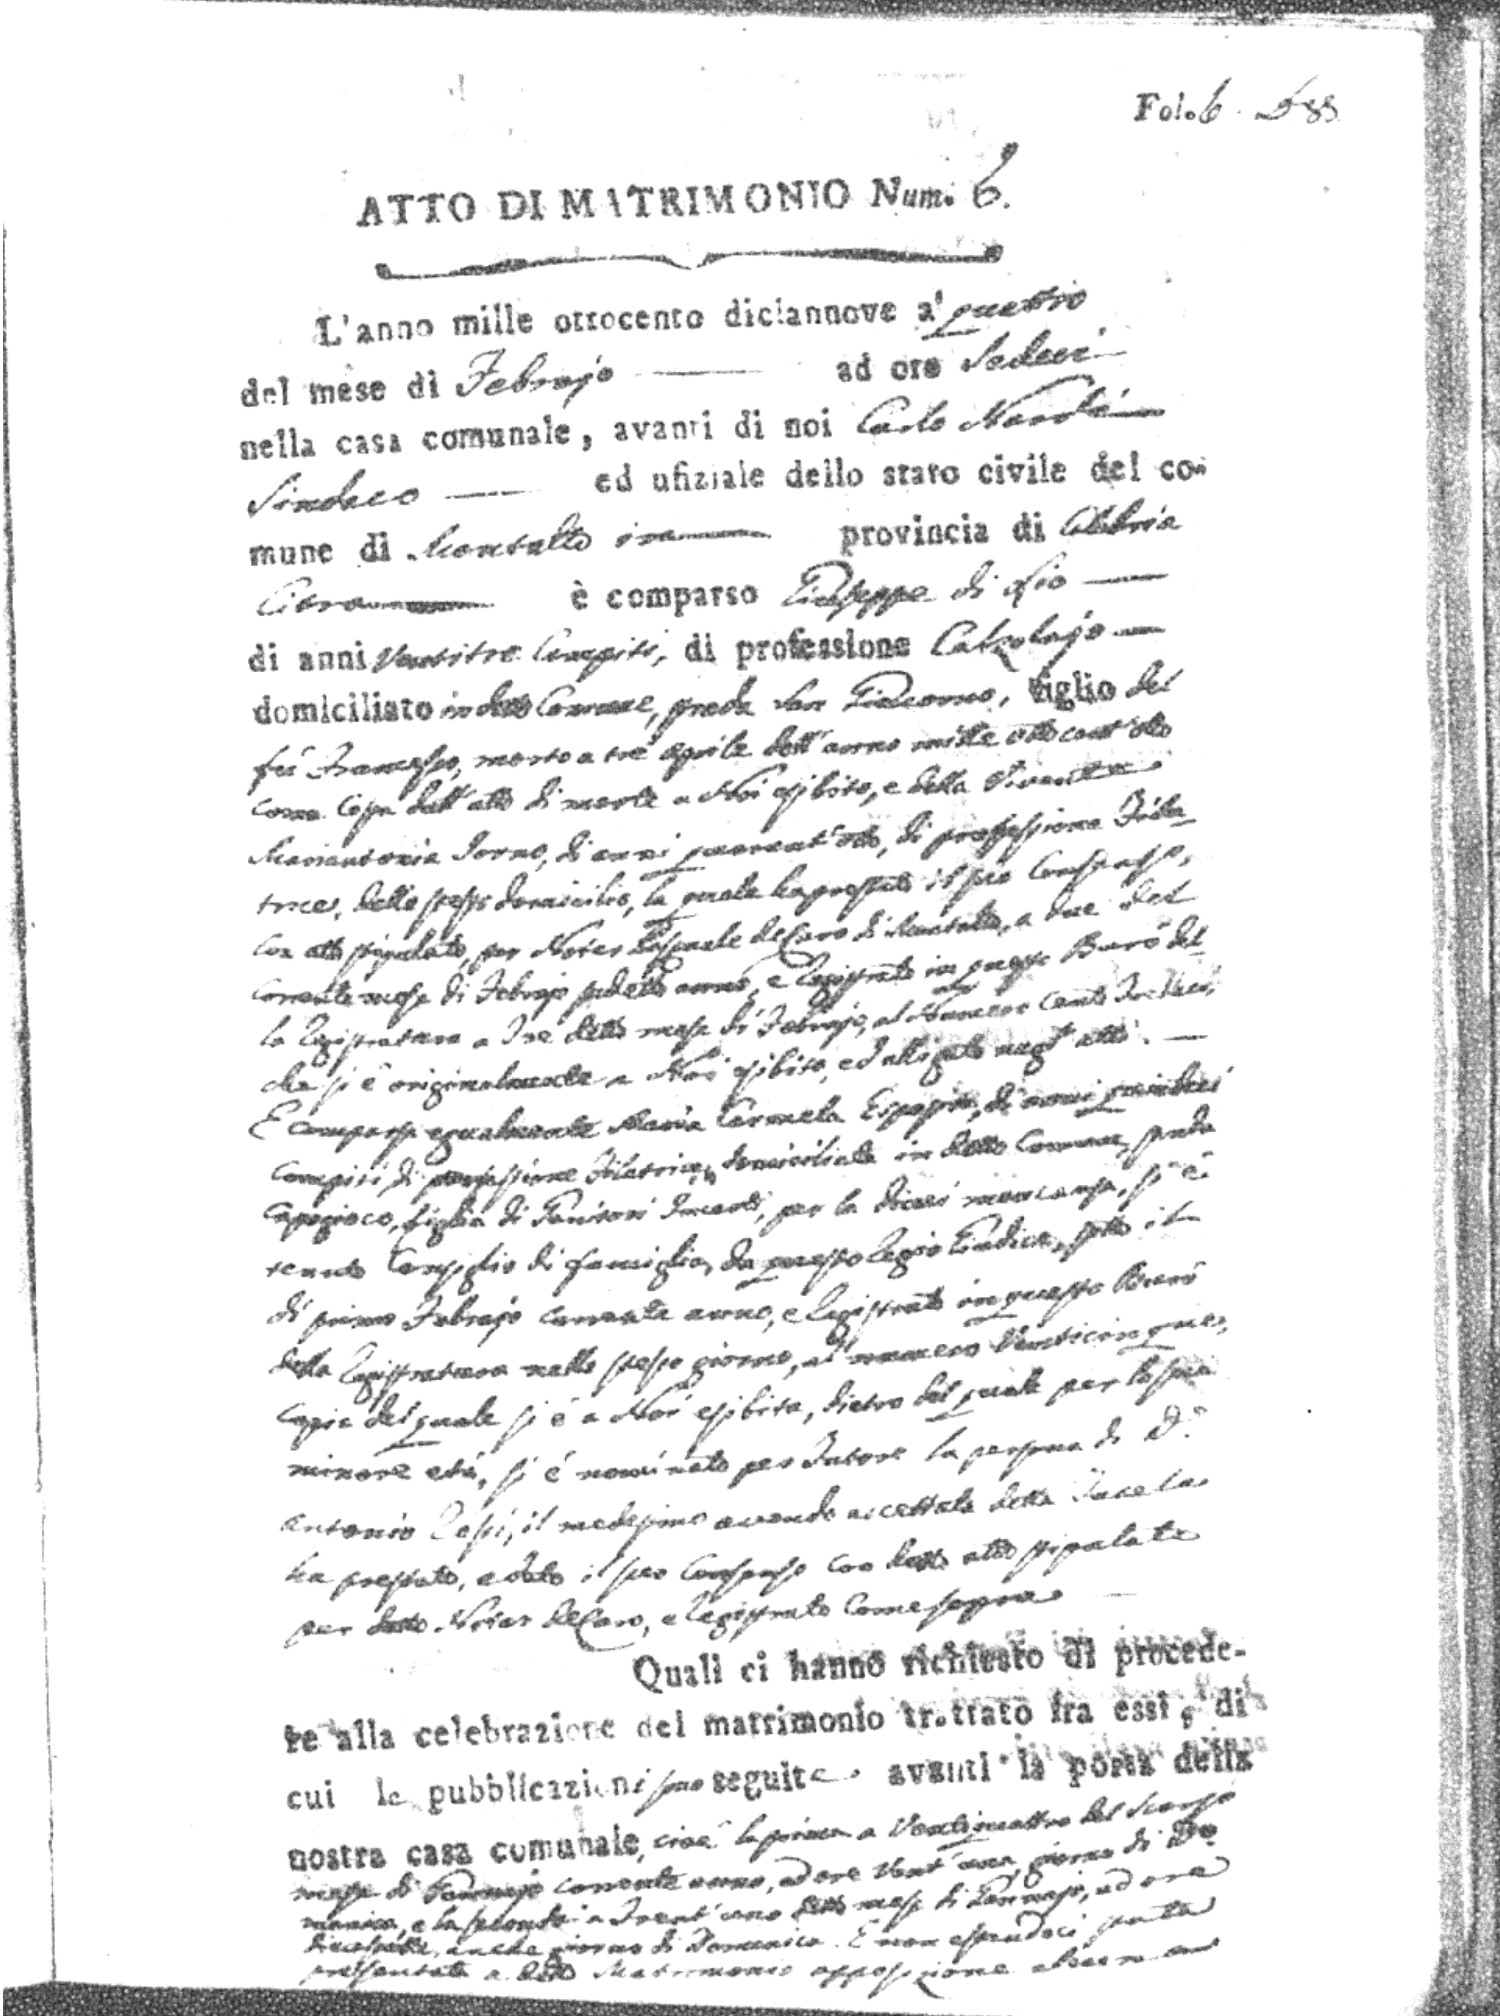 Fol. 6
ATTO DI MATRIMONIO Num. 6.
L'anno mille ottocento diciannove a' quattro
del mese di Febrajo ad ore Sedeci
nella casa comunale, avanti di noi Carlo Nardi
Sindaco ed ufiziale dello stato civile del co-
mune di Montalto provincia di Calabria
Citra è comparso Giuseppe di
di anni Ventitre Compiti, di professione Calzolajo
domiciliato in detto Comune, strada San Giacomo, figlio del
fù Francesco, morto a tre Aprile dell'anno mille otto cent'otto
come Copia dall'atto di morte a Noi esibito, e della Vivente
Mariantonia Iorno, di anni quarant'otto, di professione Fila-
trice, dello stesso domicilio, la quale ha prestato il suo Consenso,
con atto stipulato, per Notar Pasquale de Caro di Montalto, a due del
corrente mese di Febrajo sudetto anno, e Registrato in questo Burò del-
la Registratura a Tre detto mese di Febrajo, al Numero Cento Tredeci,
che si è originalmente a Noi esibito, ed alligato negl'atti.
E comparsa egualmente Maria Carmela Esposito, di anni quindeci
Compiti di professione Filatrice, domiciliata in detto Comune, strada
figlia di Genitori Incerti, per la di cui mancanza, si è
tenuto Consiglio di famiglia, da questo Regio Giudice, sotto il
dì primo Febrajo corrente anno, e Registrato in questo Burò
della Registratura nello stesso giorno, al numero Venticinque,
Copia del quale si è a Noi esibita, dietro del quale per la sua
minore età, si è nominato per Tutore la persona di D.
Antonio il medesimo avendo accettata detta Tutela
ha prestato, e dato il suo Consenso con detto atto stipulato
per detto Notar de Caro, e Registrato Come sopra
Quali ci hanno richiesto di procede-
re alla celebrazione del matrimonio trattato fra essi, di
cui le pubblicazioni sono seguite avanti la porta della
nostra casa comunale, cioè la prima a Ventiquattro del scorso
mese di Gennajo corrente anno, ad ore Vent'una, giorno di Do-
menica, e la seconda a Trent'uno detto mese di Gennajo, ad ore
anche giorno di Domenica. E non essendoci stata
presentata a detto Matrimonio opposizione alcuna